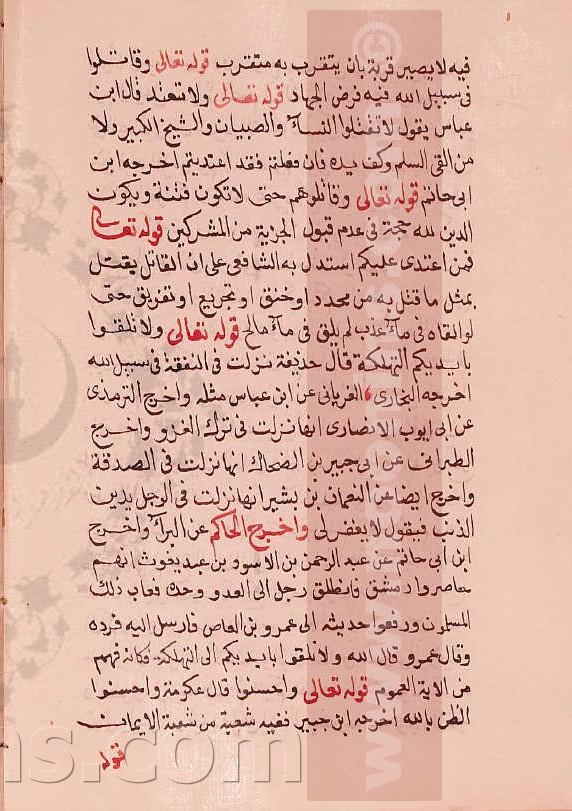 فيه لا يصير قربة بان يتقرب به متقرب قوله تعالى وقاتلوا
فى سبيل الله فيه فرض الجهاد قوله تعالى ولا تعتد قال ابن
عباس يقول لا تقتلوا النسآ والصبيان والشيخ الكبير ولا
من القى السلم وكف يده فان فعلتم فقد اعتديتم اخرجه ابن
ابى حاتم قوله تعالى وقاتلوهم حتى لا تكون فتنة ويكون
الدين لله حجة فى عدم قبول الجزية من المشركين قوله تعالى
فمن اعتدى عليكم استدل به الشافعى على ان القاتل يقتل
بمثل ما قتل به من محدد او خنق او تجريع او تغريق حتى
لو القاه فى مآء عذب لم يلق فى مآء مالح قوله تعالى ولا تلقوا
بايديكم التهلكة قال حذيفة نزلت فى النفقة فى سبيل الله
اخرجه البخارى الفريابى عن ابن عباس مثله واخرج الترمذى
عن ابى ايوب الانصارى انها نزلت فى ترك الغزو واخرج
الطبرانى عن ابى جبير بن الضحاك انها نزلت فى الصدقة
واخرج ايضا عن النعمان بن بشير انها نزلت فى الرجل يذنب
الذنب فيقول لا يغفر لى واخرج الحاكم عن البرآ واخرج
ابن ابى حاتم عن عبد الرحمن بن الاسود بن عبد يغوث انهم
حاصروا دمشق فانطلق رجل الى العدو وحده فعاب ذلك
المسلمون ورفعوا حديثه الى عمرو بن العاص فارسل اليه فرده
وقال عمرو قال الله ولا تلقوا بايديكم الى التهلكة فكانه فهم
من الاية العموم قوله تعالى واحسنوا قال عكرمة واحسنوا
الظن بالله اخرجه ابن جبير ففيه شعبة من شعبة الايمان
قوله
ns.com